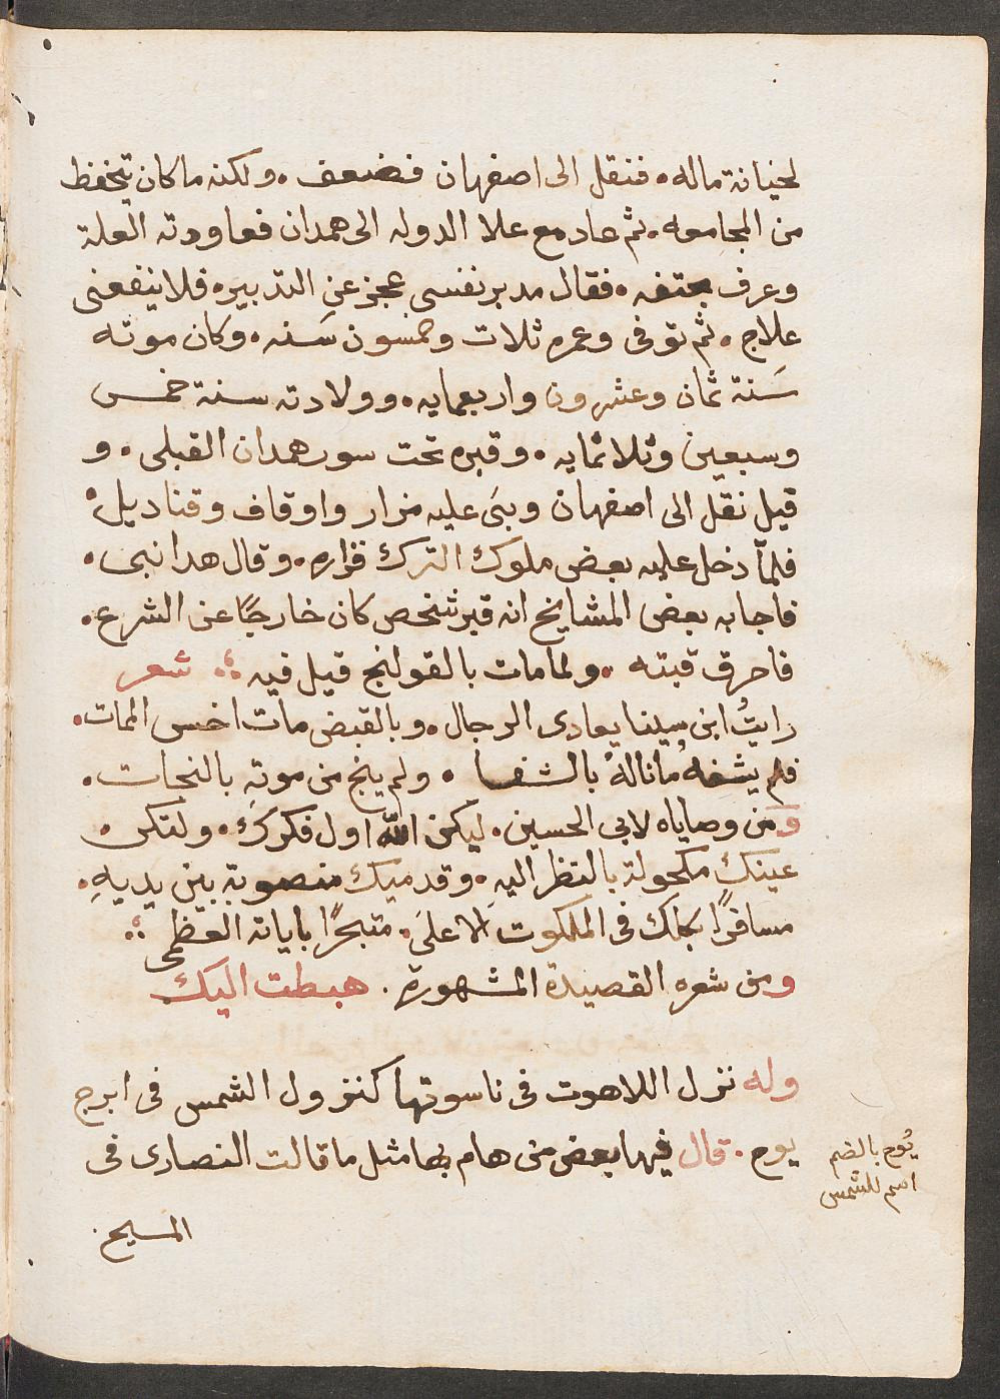 لخيانة ماله. فنقل الى اصفهان فضعف. ولكنه ما كان يتحفظ
من المجامعه. ثم عاد مع علا الدوله الى همدان فعاودته العلة
وعرف بحتفه. فقال مدبر نفسى عجز عن التدبير. فلا ينفعنى
علاج. ثم توفى وعمره ثلات وخمسون سَنه. وكان موته
سَنة ثمان وعشرون واربعمايه. وولادته سنة خمس
وسبعين وثلاثمايه. وقبره تحت سور همدان القبلى. و
قيل نقل الى اصفهان وبنى عليه مزار واوقاف وقناديل.
فلما دخل عليه بعض ملوك الترك فزاره. وقال هدا نبى.
فاجابه بعض المشايخ انه قبر شخص كان خارجًا عن الشرع.
فاحرق قبته. ولما مات بالقولنج قيل فيه ؞ شعر
رايتُ ابن سينا يعادى الرجال. وبالقبض مات اخس الممات.
فلم يشفهُ ما نالهُ بالشفا. ولم ينج من موتهِ بالنجات.
ومن وصاياه لابى الحسين. ليكن الله اول فكرك. ولتكن.
عينك مكحولة بالنظر اليهِ. وقدميك منصوبة بين يديهِ.
مسافرًا بعقلك فى الملكوت الاعلىَ. متبحرًا باياته العظمى ؞
ومن شعره القصيدة المشهورة. هبطت اليك
وله نزل اللاهوت فى ناسوتها كنزول الشمس فى ابرج
يوح. قال فيها بعض من هام بها مثل ما قالت النصارى فى
يُوح بالضم
اسم للشمس
المسيح.